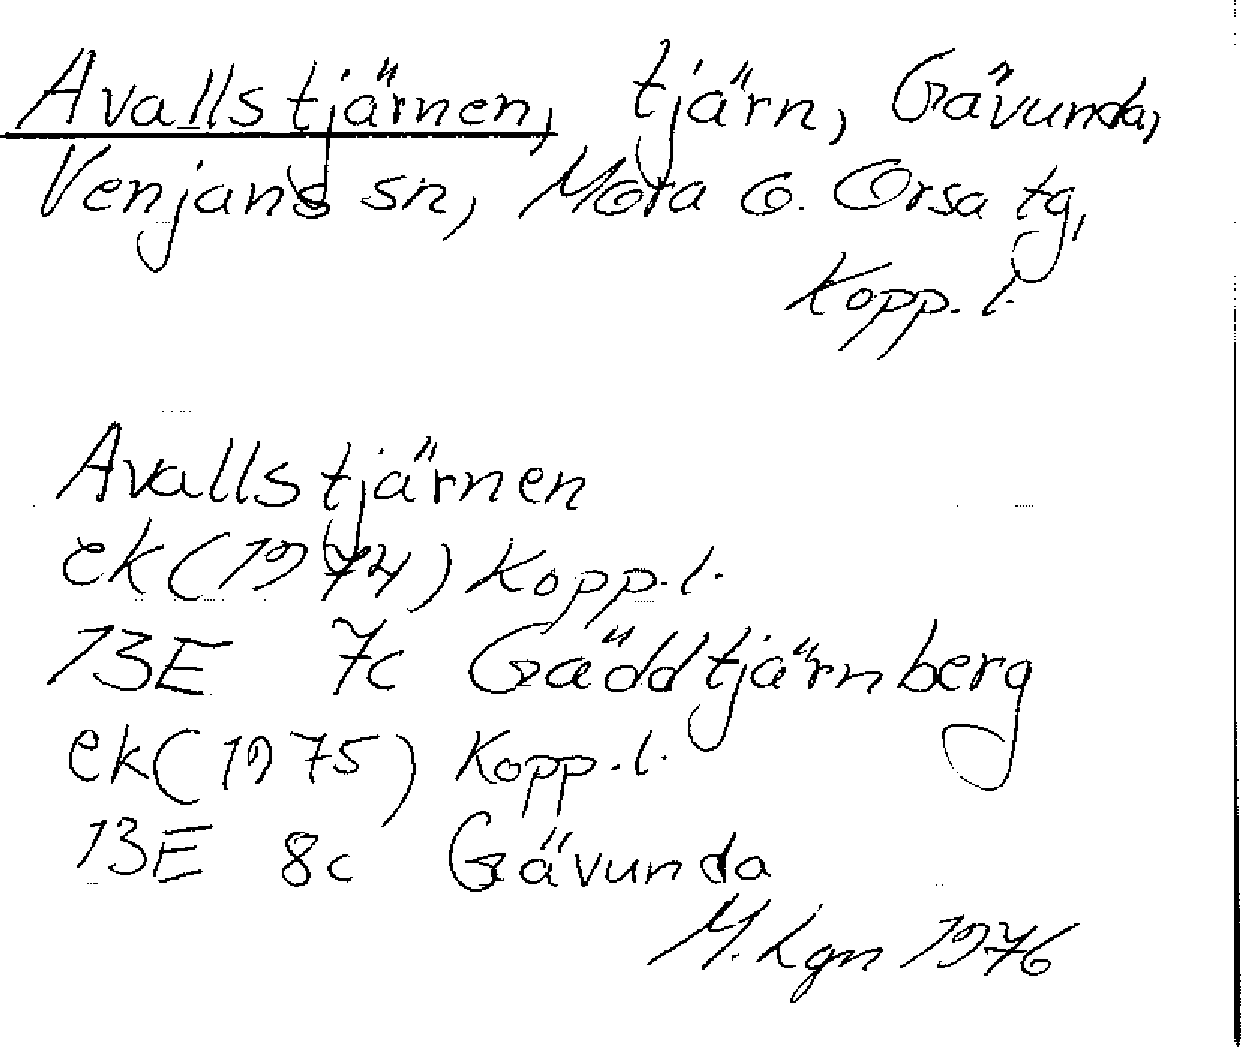 Avallstjärnen, tjärn, Gävunda,
Venjans sn, Mora o. Orsa tg,
Kopp. l.
Avallstjärnen
ek (1974) Kopp. l.
13E 7c Gäddtjärnberg
ek (1975) Kopp. l.
13E 8c Gävunda
M. Lgn 1976